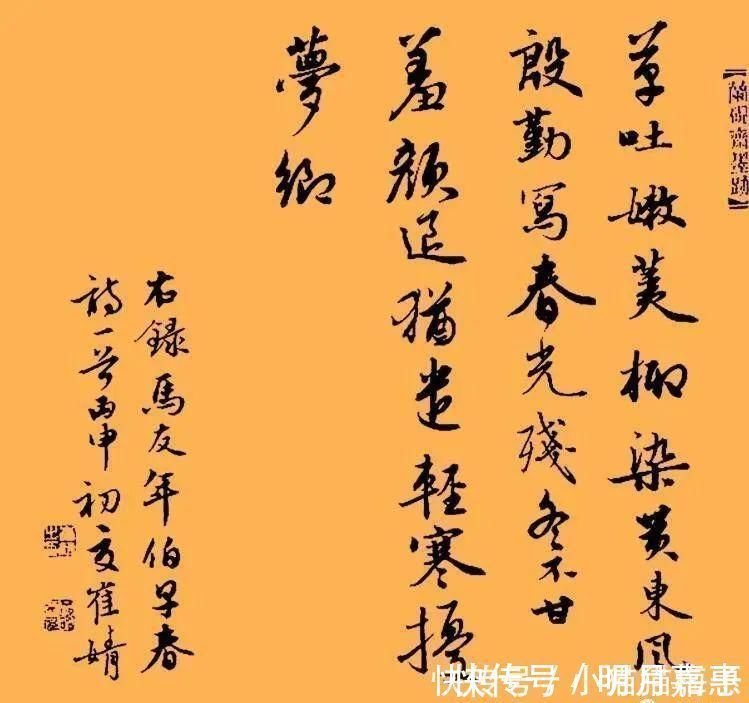 蘭硯齋墨跡
草吐嫩荑柳染黄東風
殷勤寫春光殘冬不甘
羞顏退猶遣輕寒擾
夢鄉
右錄馬友年伯早春
詩一首丙申初夏崔婧
快传号/小明月嘉惠